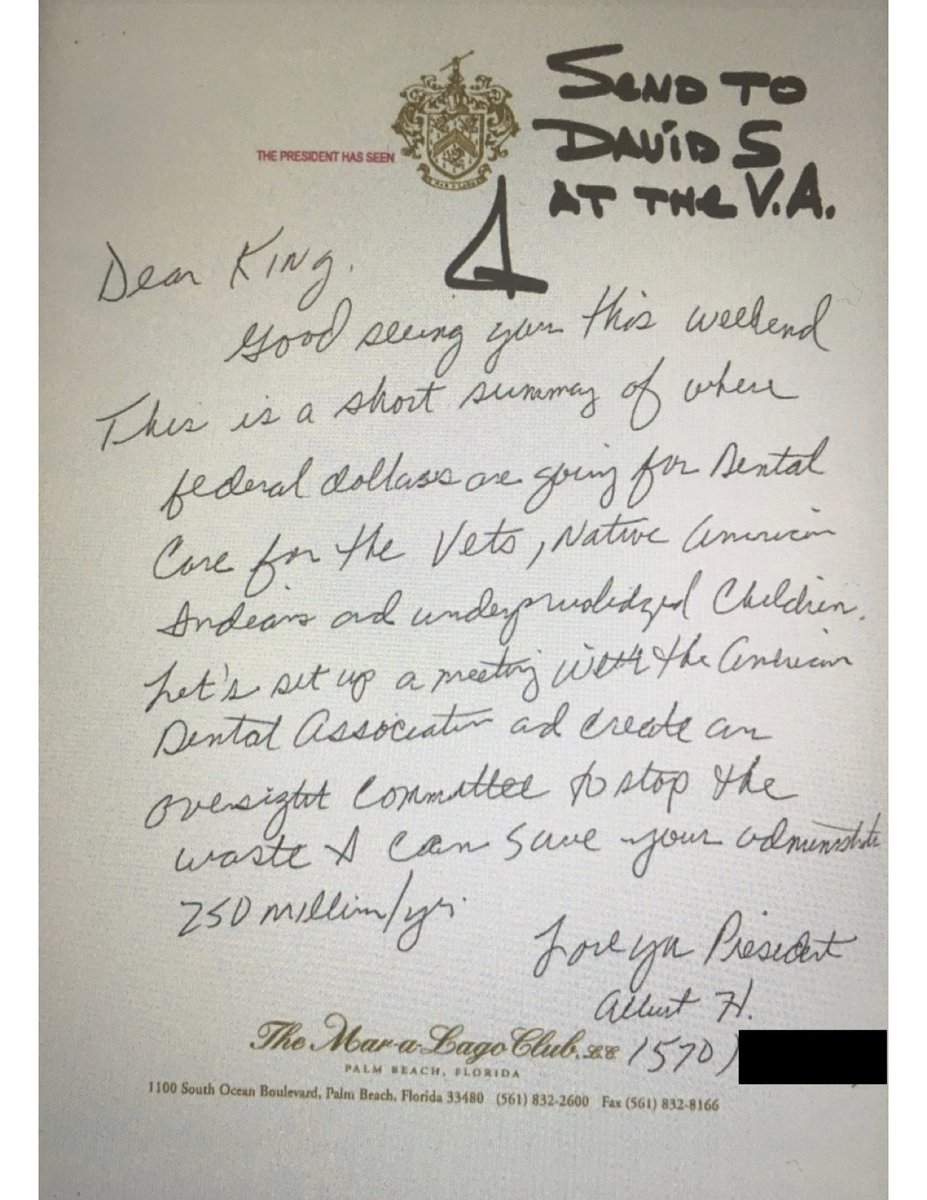 SEND TO
DAVID S
AT THE V.A.
THE PRESIDENT HAS SEEN
MAR A LAGO
Dear King.
Good seeing you this weekend
This is a short summay of where
federal dollars are going for Dental
Care for the Vets, Native American
Indians and underpriviledged Children.
Let's set up a meeting with the American
Dental Association and create an
oversight Committee to stop the
waste I can save your administratn
250 million/yr.
Love you President
Albert H.
(570)
The Mar-a-Lago Club, L.C.
PALM BEACH, FLORIDA
1100 South Ocean Boulevard, Palm Beach, Florida 33480 (561) 832-2600 Fax (561) 832-8166